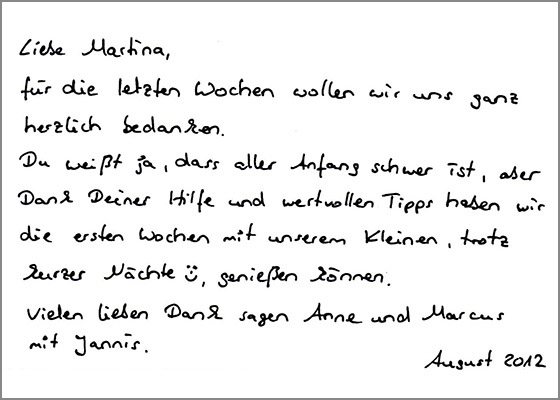 Liebe Martina,
für die letzten Wochen wollen wir uns ganz
herzlich bedanken.
Du weißt ja, dass aller Anfang schwer ist, aber
Dank Deiner Hilfe und wertvollen Tipps haben wir
die ersten Wochen mit unserem Kleinen, trotz
kurzer Nächte ☺, genießen können.
Vielen lieben Dank sagen Anne und Marcus
mit Jannis.
August 2012